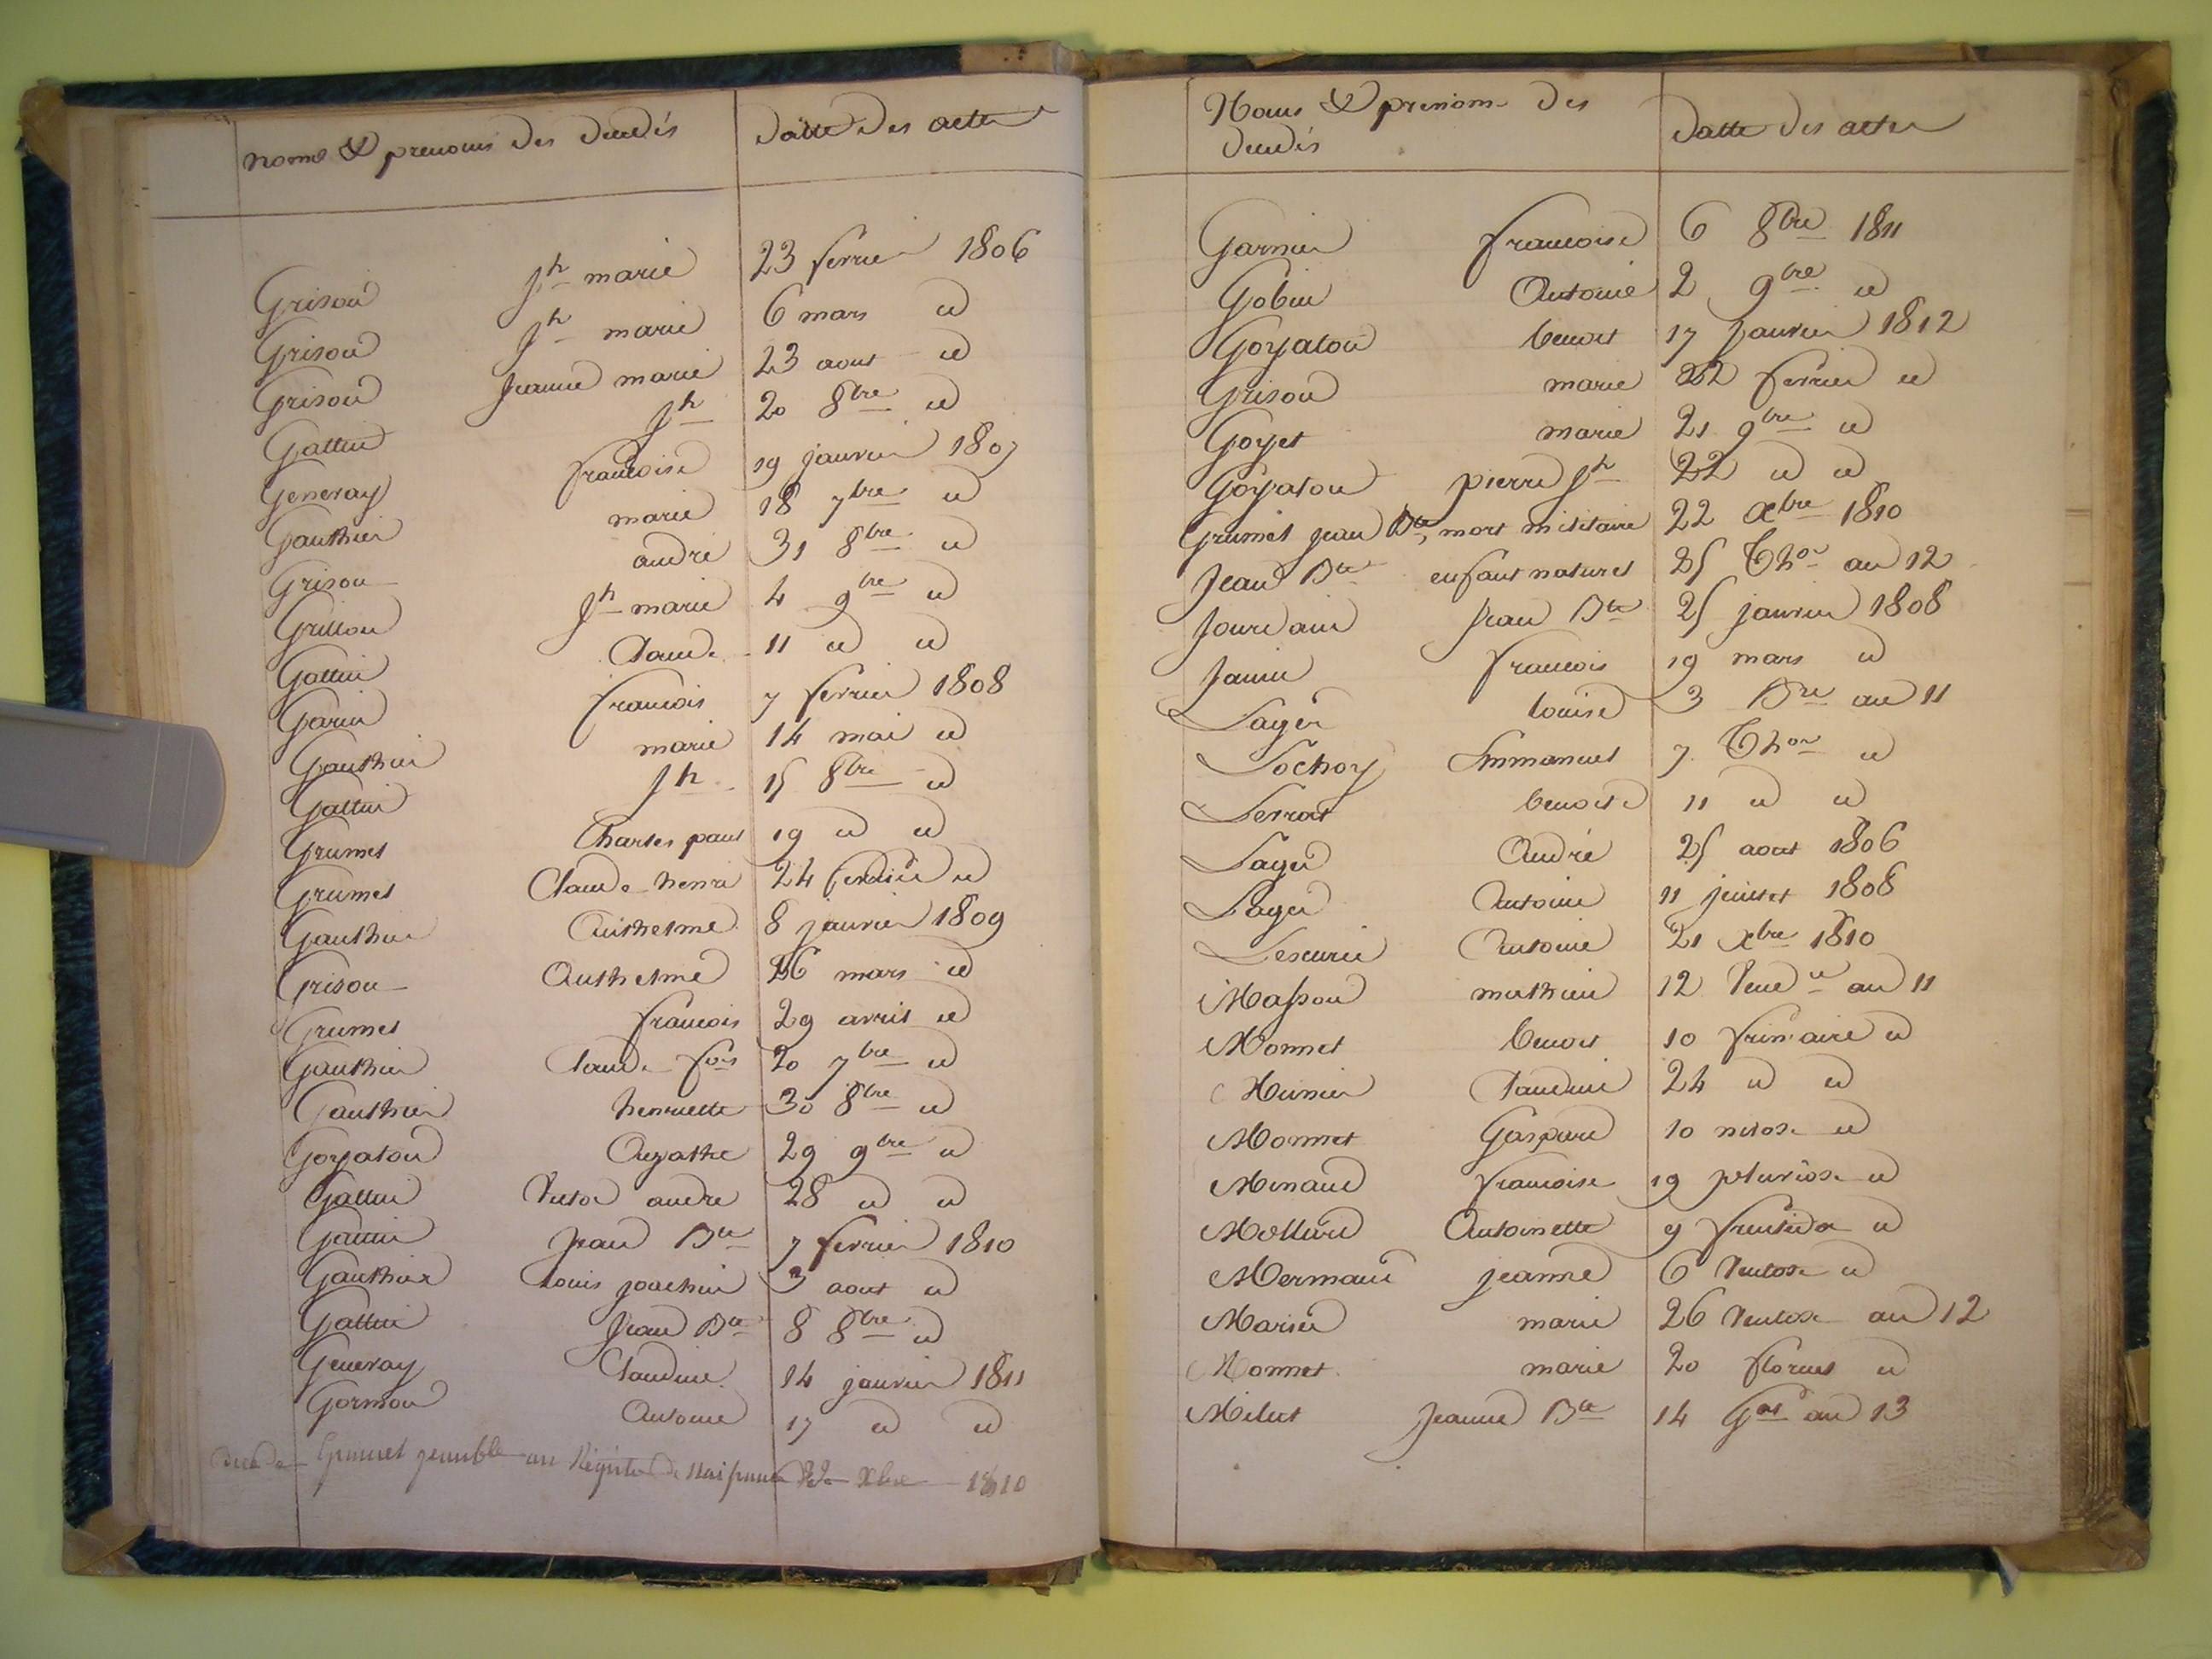 noms & prenoms des decedés	datte des actes
Grison	Jh marie	23 fevrier 1806
Grison	Jh marie	6 mars id
Grison	Jeanne marie	23 aout id
Gallin	Jh	20 8bre id
Generay	francoise	19 janvier 1807
Gauthier	marie	18 7bre id
Grison	andré	31 8bre id
Grillon	Jh marie	4 9bre id
Gallin	Claude	11 id id
Garin	francois	7 fevrier 1808
Gauthier	marie	14 mai id
Gallin	Jh	15 8bre id
Grumet	Charles paul	19 id id
Grumet	Claude henri	24 id
Gauthier	Anthelme	8 janvier 1809
Grison	Anthelme	26 mars id
Grumet	francois	29 avril id
Gauthier	Claude fois	20 7bre id
Gauthier	henriette	30 8bre id
Goyaton	Agathe	29 9bre id
Gallin	Victor andre	28 id id
Gallin	Jean Bte	7 fevrier 1810
Gauthier	Louis joachim	3 aout id
Gallin	Jean Bte	8 8bre id
Generay	Claudine	14 janvier 1811
Gormon	Antoine	17 id id
Grumet au Registre de Naissance 22 Xbre 1810
Noms & prenoms des
decedés	datte des actes
Garnier	francoise	6 8bre 1811
Gobin	Antoine	2 9bre id
Goyaton	benoit	17 janvier 1812
Grison	marie	22 fevrier id
Goyet	marie	21 9bre id
Goyaton	pierre Jh	22 id id
Grumet jean Bte, mort militaire	22 Xbre 1810
Jean Bte enfant naturel	25 Thor an 12
Jourdain	Jean Bte	25 janvier 1808
Janin	francois	19 mars id
Lager	louise	3 Bre an 11
Lochoy	Emmanuel	7 Thor id
Perrot	benoite	11 id id
Lager	André	25 aout 1806
Lager	Antoine	11 juillet 1808
Lescurie	Antoine	21 Xbre 1810
Masson	mathieu	12 Vendre an 11
Monnet	benoit	10 frimaire id
Munier	Claudine	24 id id
Monnet	Gaspard	10 nivose id
Minaud	francoise	19 pluviose id
Mollard	Antoinette	9 fructidor id
Mermand	jeanne	6 Ventose id
Marier	marie	26 Ventose an 12
Monnet	marie	20 floreal id
Milut	Jeanne Bte	14 Gal an 13